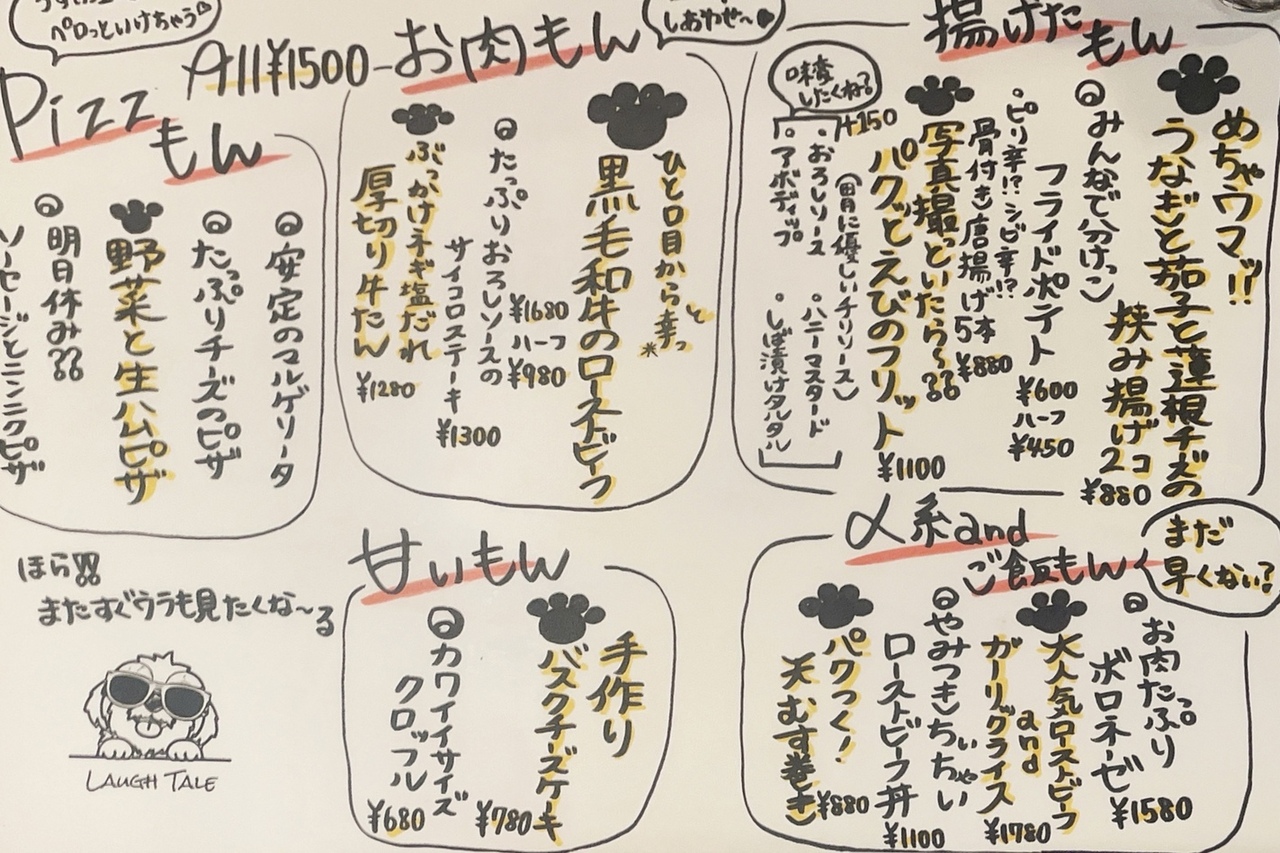 ペロっといけちゃう
しあわせ〜
揚げたもん
めちゃウマ!!
うなぎと茄子と蓮根チーズの
挟み揚げ2コ
¥880
みんなで分けっこ
フライドポテト
¥600
ハーフ
¥450
・ピリ辛!?シビ辛!?
骨付き唐揚げ5本
¥880
写真撮っといたら〜??
パクッとえびのフリット
¥1100
味変
したくね?
+150
・おろしソース
(胃に優しいチリソース)
・ハニーマスタード
・アボディップ
・しば漬けタルタル
All¥1500
お肉もん
ひと口目から幸っと
黒毛和牛のローストビーフ
¥1680
ハーフ
¥980
たっぷりおろしソースの
サイコロステーキ
¥1300
ぶっかけネギ塩だれ
厚切り牛たん
¥1280
Pizzもん
安定のマルゲリータ
たっぷりチーズのピザ
野菜と生ハムピザ
明日休み??
ソーセージとニンニクピザ
〆系and
ご飯もん
まだ
早くない?
お肉たっぷり
ボロネーゼ
¥1580
大人気ローストビーフ
and
ガーリックライス
¥1780
やみつきちぃちゃい
ローストビーフ丼
¥1100
パクっく!
天むす巻き
¥880
甘いもん
手作り
バスクチーズケーキ
¥780
カワイイサイズ
クロッフル
¥680
ほら!!
またすぐウラも見たくな〜る
LAUGH TALE